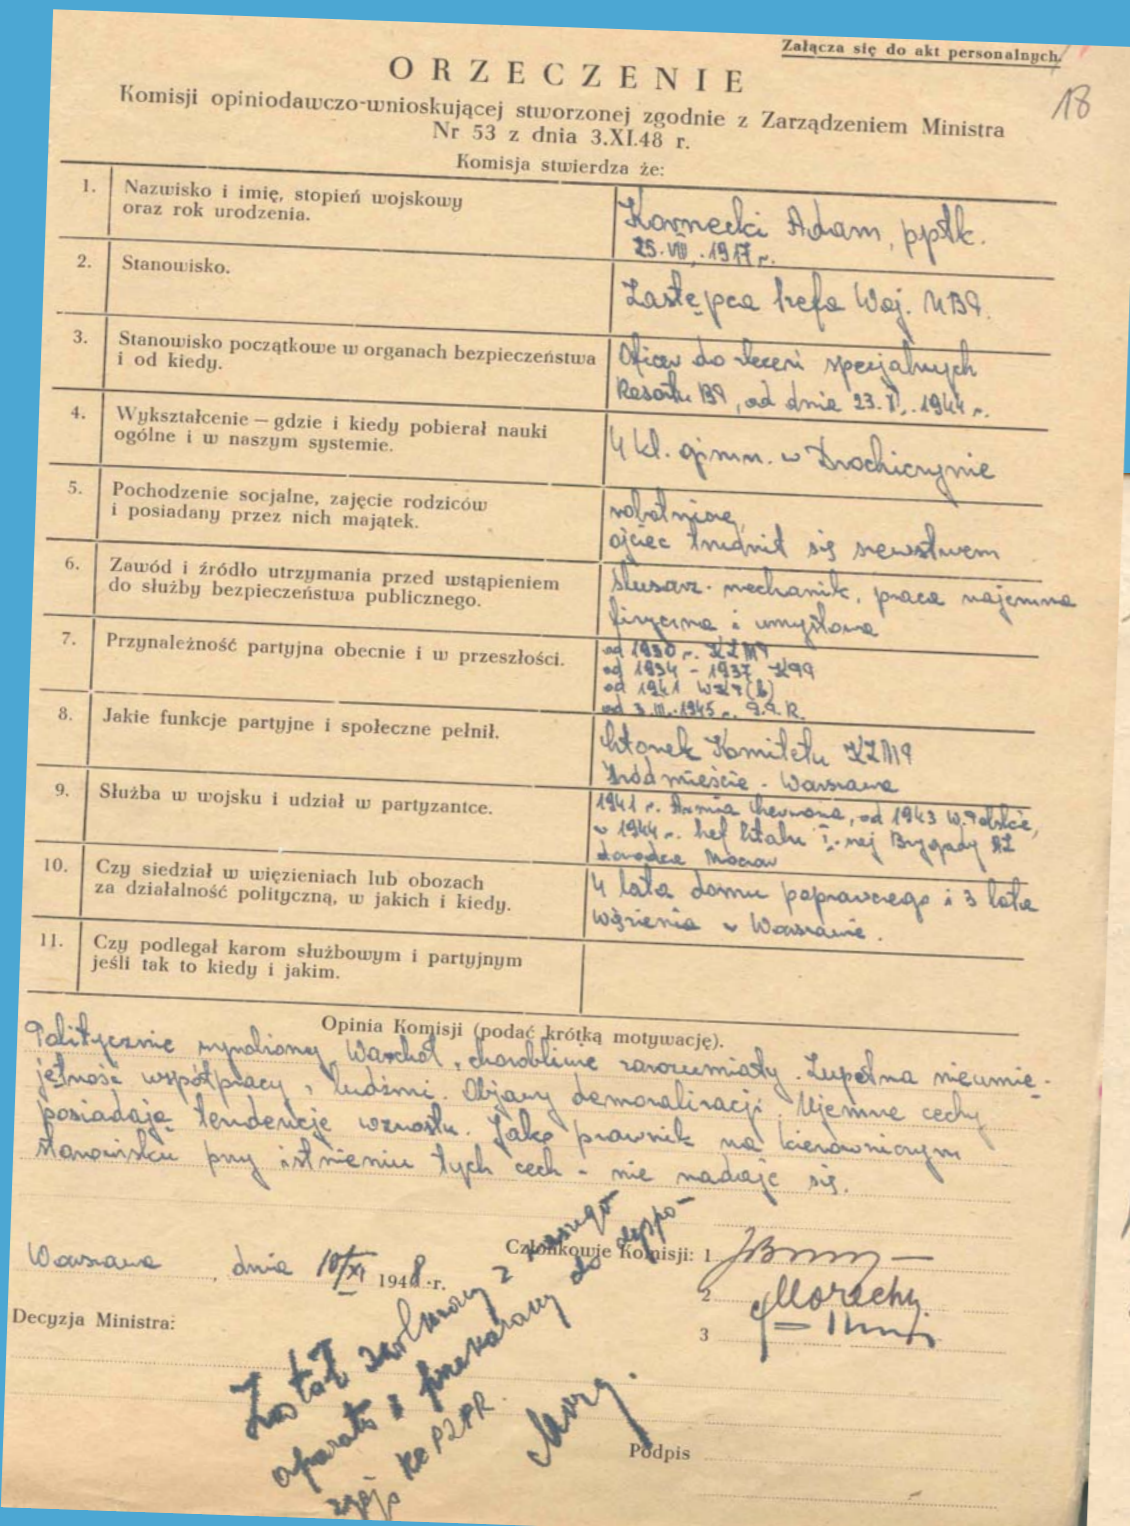 Załącza się do akt personalnych.
18
ORZECZENIE
Komisji opiniodawczo-wnioskującej stworzonej zgodnie z Zarządzeniem Ministra
Nr 53 z dnia 3.XI.48 r.
Komisja stwierdza że:
1. Nazwisko i imię, stopień wojskowy
oraz rok urodzenia.
Kornecki Adam, ppłk.
25.VIII.1917 r.
2. Stanowisko.
Zastępca Szefa Woj. UBP.
3. Stanowisko początkowe w organach bezpieczeństwa
i od kiedy.
Oficer do zleceń specjalnych
Resortu BP, od dnia 23.X.1944 r.
4. Wykształcenie – gdzie i kiedy pobierał nauki
ogólne i w naszym systemie.
4 kl. gimn. w Drochiczynie
5. Pochodzenie socjalne, zajęcie rodziców
i posiadany przez nich majątek.
robotnicze,
ojciec trudnił się szewstwem
6. Zawód i źródło utrzymania przed wstąpieniem
do służby bezpieczeństwa publicznego.
ślusarz-mechanik, praca najemna
fizyczna i umysłowa
7. Przynależność partyjna obecnie i w przeszłości.
od 1930 r. KZMP
od 1934 - 1937 KPP
od 1941 WKP(b)
od 3.III.1945 r. P.P.R.
8. Jakie funkcje partyjne i społeczne pełnił.
Członek Komitetu KZMP
Śródmieście - Warszawa
9. Służba w wojsku i udział w partyzantce.
1941 r. Armia Czerwona, od 1943 W.Polskie,
w 1944 r. szef sztabu I-nej Brygady AL
dowódca Moczar
10. Czy siedział w więzieniach lub obozach
za działalność polityczną, w jakich i kiedy.
4 lata domu poprawczego i 3 lata
więzienia w Warszawie.
11. Czy podlegał karom służbowym i partyjnym
jeśli tak to kiedy i jakim.
Opinia Komisji (podać krótką motywację).
Politycznie wyrobiony. Warchoł, chorobliwie zarozumiały. Zupełna nieumie-
jętność współpracy z ludźmi. Objawy demoralizacji. Ujemne cechy
posiadają tendencje wzrostu. Jako prawnik na kierowniczym
stanowisku przy istnieniu tych cech - nie nadaje się.
Warszawa, dnia 10/XI 1948 r.
Członkowie Komisji: 1
2
3
Decyzja Ministra:
Został zwolniony z naszego
aparatu i przekazany do dyspo-
zycji KC PZPR.
Podpis